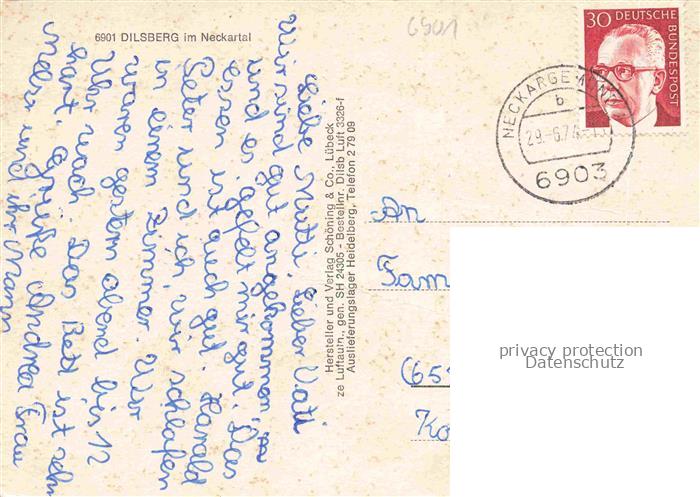 6901 DILSBERG im Neckartal
6901
Liebe Mutti. Lieber Vati
Wir sind gut angekommen,
und es gefelt mir gut. Das
essen ist auch gut. Harald
Peter und ich, wir schlafen
in einem Zimmer. Wir
waren gestern abend bis 12
Uhr wach. Das Bett ist sehr
hart. Grüße Andrea Frau
und ihr Mann
Hersteller und Verlag Schöning & Co., Lübeck
ze Luftaufn., gen. SH 24305 - Bestellnr. Dilsb Luft 3326-f
Auslieferungslager Heidelberg, Telefon 2 79 09
30 DEUTSCHE
BUNDESPOST
NECKARGEMÜND
b
29.-6.74
6903
An
Fam
(65
Ko
privacy protection
Datenschutz